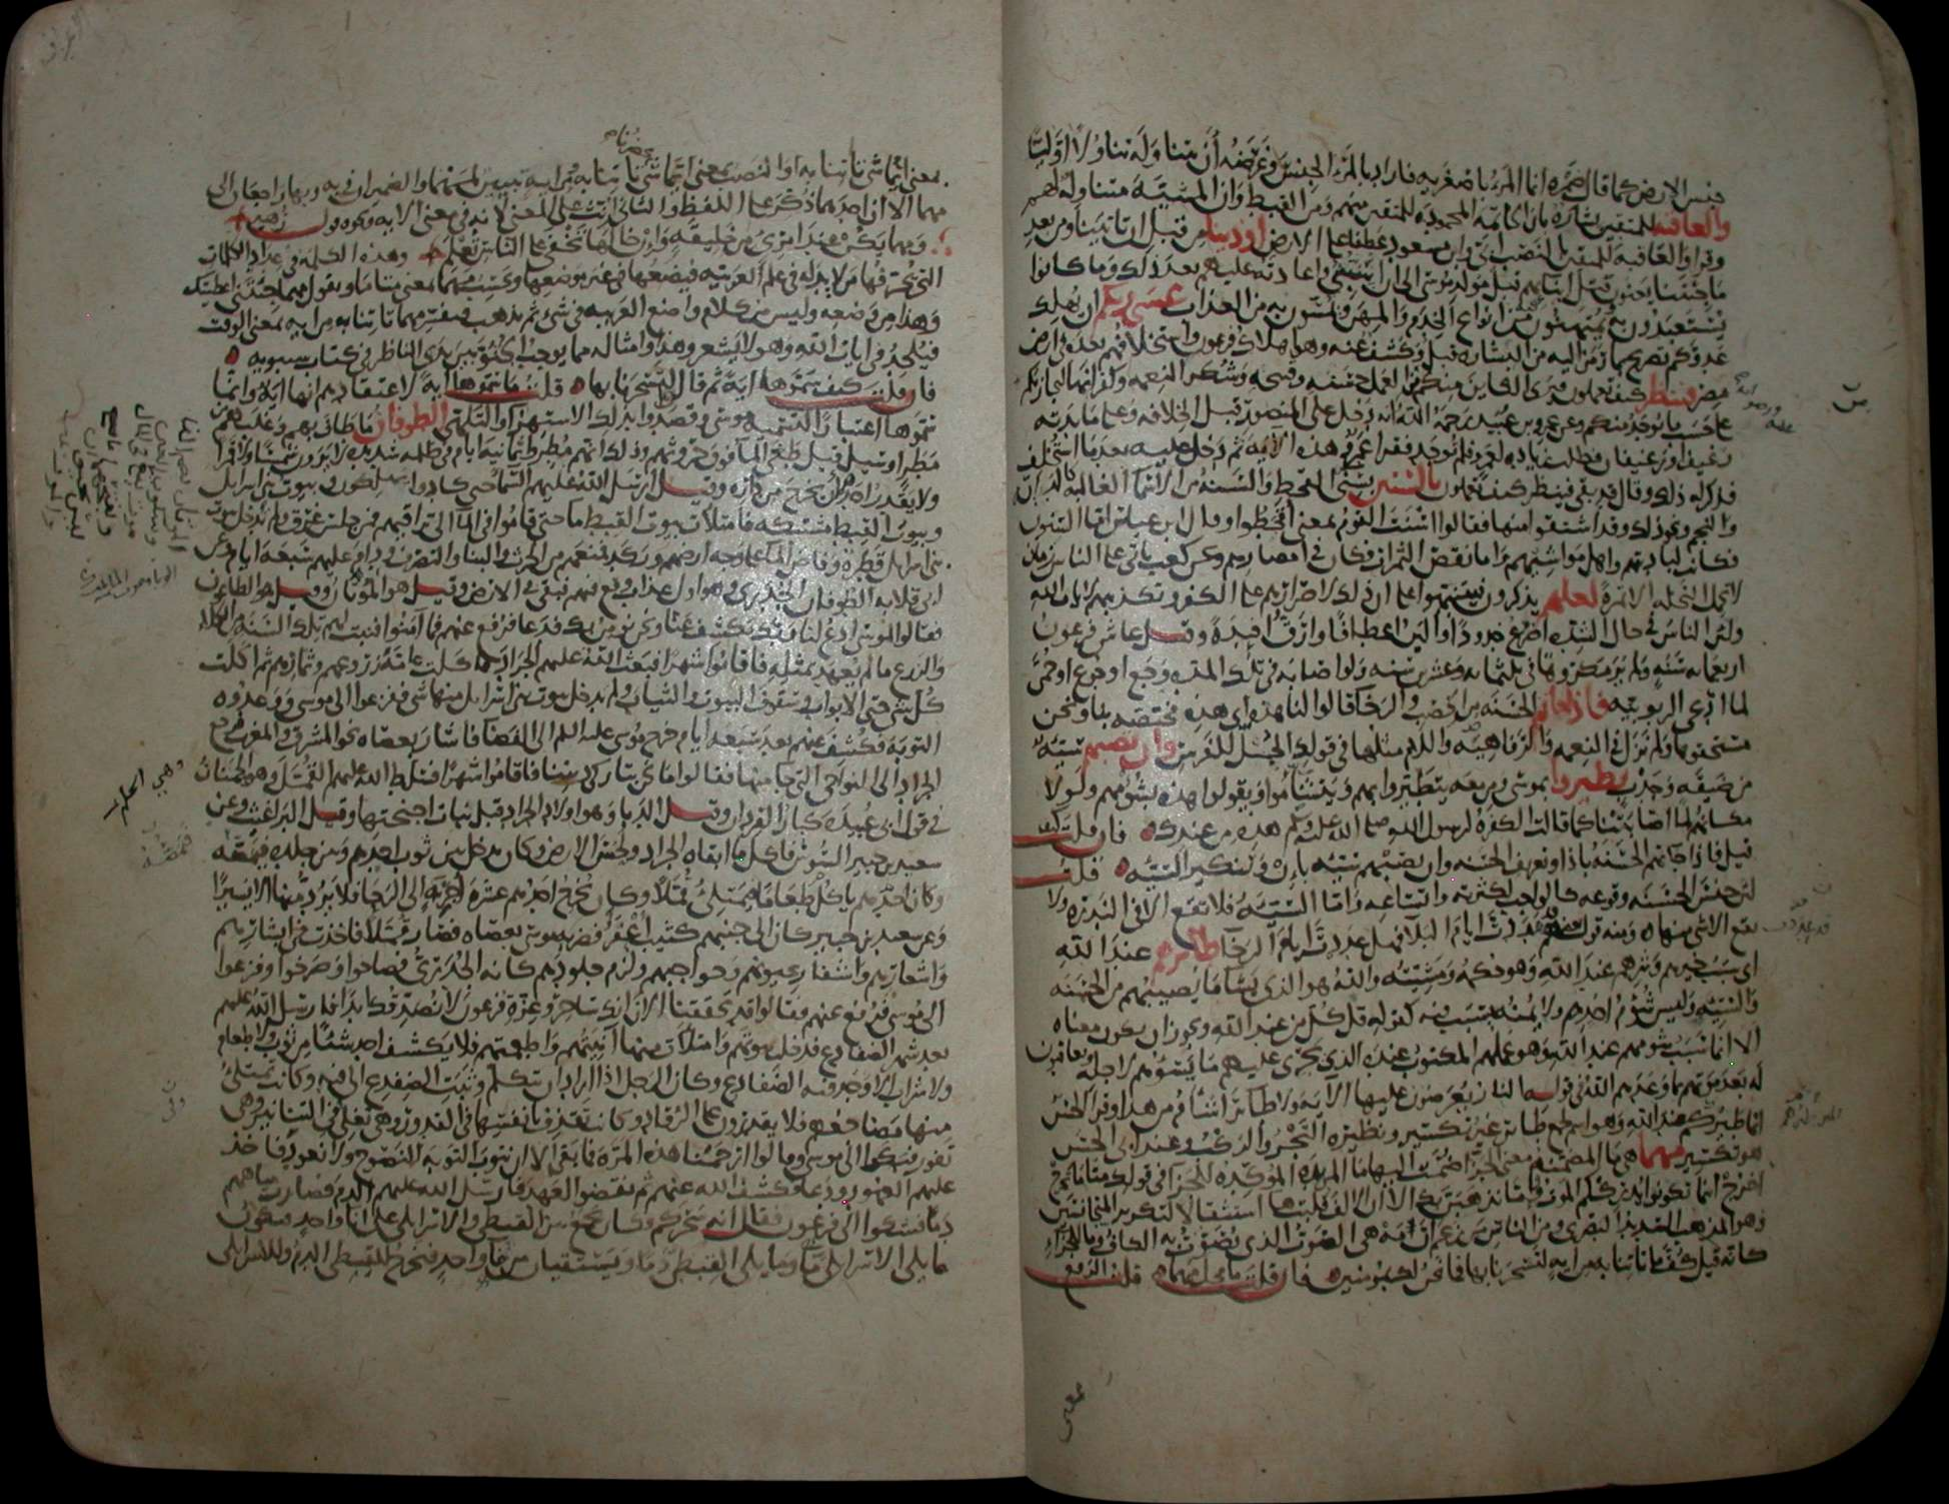 جنس الارض كما قال ضمرة انما المرء باصغريه فاراد بالمرء الجنس وغرضه أن يتناوله تناولا اوليا
والعاقبه للمتقين بشارة بان الخاتمة المحمودة للمتقين منهم ومن القبط وان المشيّة متناولة لهم
وقرا والعاقبة للمتقين بالنصب ابي وابن مسعود عطفا على الارض اوذينا من قبل ان تاتينا ومن بعد
ما جئتنا يعنون قتل ابنائهم قبل مولد موسى الى ان استنبئ واعادته عليهم بعد ذلك وما كانوا
يستعبدون به ويمتهنون فيه من انواع الخدم والمهن ويمسّون به من العذاب عسى ربكم ان يهلك
عدوكم تصريح بما رمز اليه من البشارة قبل وكشف عنه وهو اهلاك فرعون واستخلافهم بعده في ارض
مصر فينظر كيف تعملون فيرى الكائن منكم من العمل حسنه وقبيحه وشكر النعمه وكفرانها ليجازيكم
على حسب ما يوجد منكم وعن عمرو بن عبيد رحمه الله انه دخل على المنصور قبل الخلافه وعلى مائدته
رغيف او رغيفان فطلب زيادة لعمرو فلم توجد فقرا عمرو هذه الاية ثم دخل عليه بعد ما استخلف
فذكر له ذلك وقال قد بقي فينظر كيف تعملون بالسنين بسني القحط والسنة من الاسماء الغالبة كالدابة
والنجم ونحو ذلك وقد اشتقوا منها فقالوا اسنت القوم بمعنى اقحطوا وقال ابن عباس اما السنون
فكانت لباديتهم واهل مواشيهم واما نقص الثمرات فكان في امصارهم وعن كعب ياتي على الناس زمان
لا تحمل النخلة الا تمرة لعلهم يذكرون فيتنبهوا على ان ذلك لاصرارهم على الكفر وتكذيبهم لايات الله
ولان الناس في حال الشدة اضرع خدودا والين اعطافا وارق افئدة وقيل عاش فرعون
اربعمائة سنة ولم ير مكروها في ثلثمائة وعشرين سنه ولو اصابه في تلك المدة وجع او جوع او حمّى
لما ادعى الربوبيّه فاذا جاءتهم الحسنة من الخصب والرخا قالوا لنا هذه اى هذه مختصه بنا ونحن
مستحقوها ولم نزل في النعمه والرفاهيه واللام مثلها في قولك الجل للفرس وان تصبهم سيّئة
من ضيقة وجدب يطيروا بموسى ومن معه يتطيّروا بهم ويتشاموا ويقولوا هذه بشؤمهم ولولا
مكانهم لما اصابتنا كما قالت الكفرة لرسول الله صلى الله عليه وسلم هذه من عندك فان قلت كيف
قيل فاذا جاءتهم الحسنة باذا وتعريف الحسنه وان تصبهم سيئة بإن وتنكير السيّئة قلت
لان جنس الحسنة وقوعه كالواجب لكثرته واتساعه واما السيئة فلا تقع الا في الندرة ولا
يقع الا شئ منها ومنه قول بعضهم قد عددت ايام البلا فهل عددت ايام الرخا طائرهم عند الله
اى سبب خيرهم وشرهم عند الله وهو حكمه ومشيئته والله هو الذي يشا ما يصيبهم من الحسنة
والسيئة وليس شؤم احدهم ولا يمنه بسبب فيه كقوله قل كل من عند الله ويجوز ان يكون معناه
الا انما سبب شومهم عند الله وهو عملهم المكتوب عنده الذي يجرى عليهم ما يسوءهم لاجله ويعاقبون
له بعد موتهم بما وعدهم الله في قوله النار يعرضون عليها الآية ولا طائر اشام من هذا وقرا الحسن
انما طيركم عند الله وهو اسم لجمع طائر غير تكسير ونظيره التجر والركب وعند ابى الحسن
هو تكسير مهما هى ما المضمنة معنى الجزا ضمت اليها ما المزيدة الموكّدة للجزا في قولك متى ما تخرج
اخرج اينما تكونوا يدرككم الموت فاما نذهبن بك الا ان الالف قلبت ها استثقالا لتكرير المتجانسين
وهو المذهب السديد البصرى ومن الناس من زعم ان مه هى الصوت الذى يصوّت به الكاف وما للجزاء
كانه قيل كفّ ما تاتنا به من اية لتسحرنا بها فما نحن لك بمومنين فان قلت ما محل مهما قلت الرفع
بمعنى
بمعنى ايما شي تاتنا به او النصب بمعنى ايما شي تحضرنا تاتنا به ومن اية تبيين لمهما والضميران في به وبها راجعان الى
مهما الا ان احدهما ذكّر على اللفظ والثاني انث على المعنى لانه في معنى الايه ونحوه قول زهير
ومهما يكن عند امرئ من خليقة وإن خالها تخفى على الناس تعلم وهذه الكلمه في عداد الكلمات
التي يحرفها من لا يد له في علم العربيه فيضعها في غير موضعها ويحسب مهما بمعنى متى ما ويقول مهما جئتني اعطيتك
وهذا من وضعه وليس من كلام واضع العربيه في شئ ثم يذهب فيفسر مهما تاتنا به من ايه بمعنى الوقت
فيلحد في ايات الله وهو لا يشعر وهذا وامثاله مما يوجب الجثوّ بين يدى الناظر في كتاب سيبويه
فان قلت كيف سمّوها اية ثم قالوا لتسحرنا بها قلت ما سمّوها اية لاعتقادهم انها اية وانما
سموها اعتبارا لتسميه موسى وقصدوا بذلك الاستهزا والتلهي الطوفان ما طاف بهم وغلبهم من
مطر او سيل قيل طغى الما فوق حروثهم وذلك انهم مطروا ثمانية ايام في ظلمه شديده لا يرون شمسا ولا قمرا
ولا يقدر احدهم ان يخرج من داره وقيل ارسل الله عليهم السما حتى كادوا يهلكون وبيوت بني اسرايل
وبيوت القبط مشتبكه فامتلات بيوت القبط ما حتى قاموا في الما الى تراقيهم فمن جلس غرق ولم تدخل بيوت
بنى اسرايل قطرة وفاض الما على وجه ارضهم وركد فمنعهم من الحرث والبنا والتصرف ودام عليهم سبعة ايام وعن
ابى قلابه الطوفان الجدرى وهو اول عذاب وقع فيهم فبقى في الارض وقيل هو الموتان وقيل هو الطاعون
فقالوا لموسى ادع لنا ربك يكشف عنا ونحن نومن بك فدعا فرفع عنهم فما آمنوا فنبت لهم تلك السنة من الكلاء
والزرع ما لم يعهد بمثله فاقاموا شهرا فبعث الله عليهم الجراد فاكلت عامّة زروعهم وثمارهم ثم اكلت
كل شئ حتى الابواب وسقوف البيوت والثياب ولم يدخل بيوت بني اسرايل منها شي ففزعوا الى موسى ووعدوه
التوبة فكشف عنهم بعد سبعة ايام خرج موسى عليه السلام الى الفضا فاشار بعصاه نحو المشرق والمغرب فرجع
الجراد الى النواحي التي جا منها فقالوا ما نحن بتاركي ديننا فاقاموا شهرا فسلط الله عليهم القمّل وهو الحمنان
في قول ابى عبيدة كبار القردان وقيل الدبا وهو اولاد الجراد قبل نبات اجنحتها وقيل البراغيث وعن
سعيد بن جبير السوس فاكل ما ابقاه الجراد ولحس الارض وكان يدخل بين ثوب احدهم وبين جلده فيمصّه
وكان احدهم ياكل طعاما فيمتلئ قمّلا وكان يخرج احدهم عشرة اجربة الى الرحا فلا يرد منها الا يسيرا
وعن سعيد بن جبير كان الى جنبهم كثيب اعفر فضربه موسى بعصاه فصار قمّلا فاخذت في ابشارهم
واشعارهم واشفار عيونهم وحواجبهم ولزم جلودهم كانه الجدرى فصاحوا وصرخوا وفزعوا
الى موسى فرفع عنهم فقالوا قد تحققنا الان انك ساحر وعزة فرعون لا نصدقك ابدا فارسل الله عليهم
بعد شهر الضفادع فدخلت بيوتهم وامتلات منها آنيتهم واطعمتهم فلا يكشف احد شيئا من ثوب ولا طعام
ولا شراب الا وجد فيه الضفادع وكان الرجل اذا اراد ان يتكلم وثبت الضفدع الى فيه وكانت تمتلئ
منها مضاجعهم فلا يقدرون على الرقاد وكانت تقذف بانفسها في القدور وهي تغلى وفي التنانير وهى
تفور فشكوا الى موسى وقالوا ارحمنا هذه المرة فما بقى الا ان نتوب التوبة النصوح ولا نعود فاخذ
عليهم العهود ودعا فكشف الله عنهم ثم نقضوا العهد فارسل الله عليهم الدم فصارت مياههم
دما فشكوا الى فرعون فقال انه سحركم فكان يجمع بين القبطى والاسرايلى على انا واحد فيكون
ما يلى الاسرايلى ما وما يلى القبطى دما ويستقيان من ما واحد فيخرج للقبطى الدم وللاسرايلى